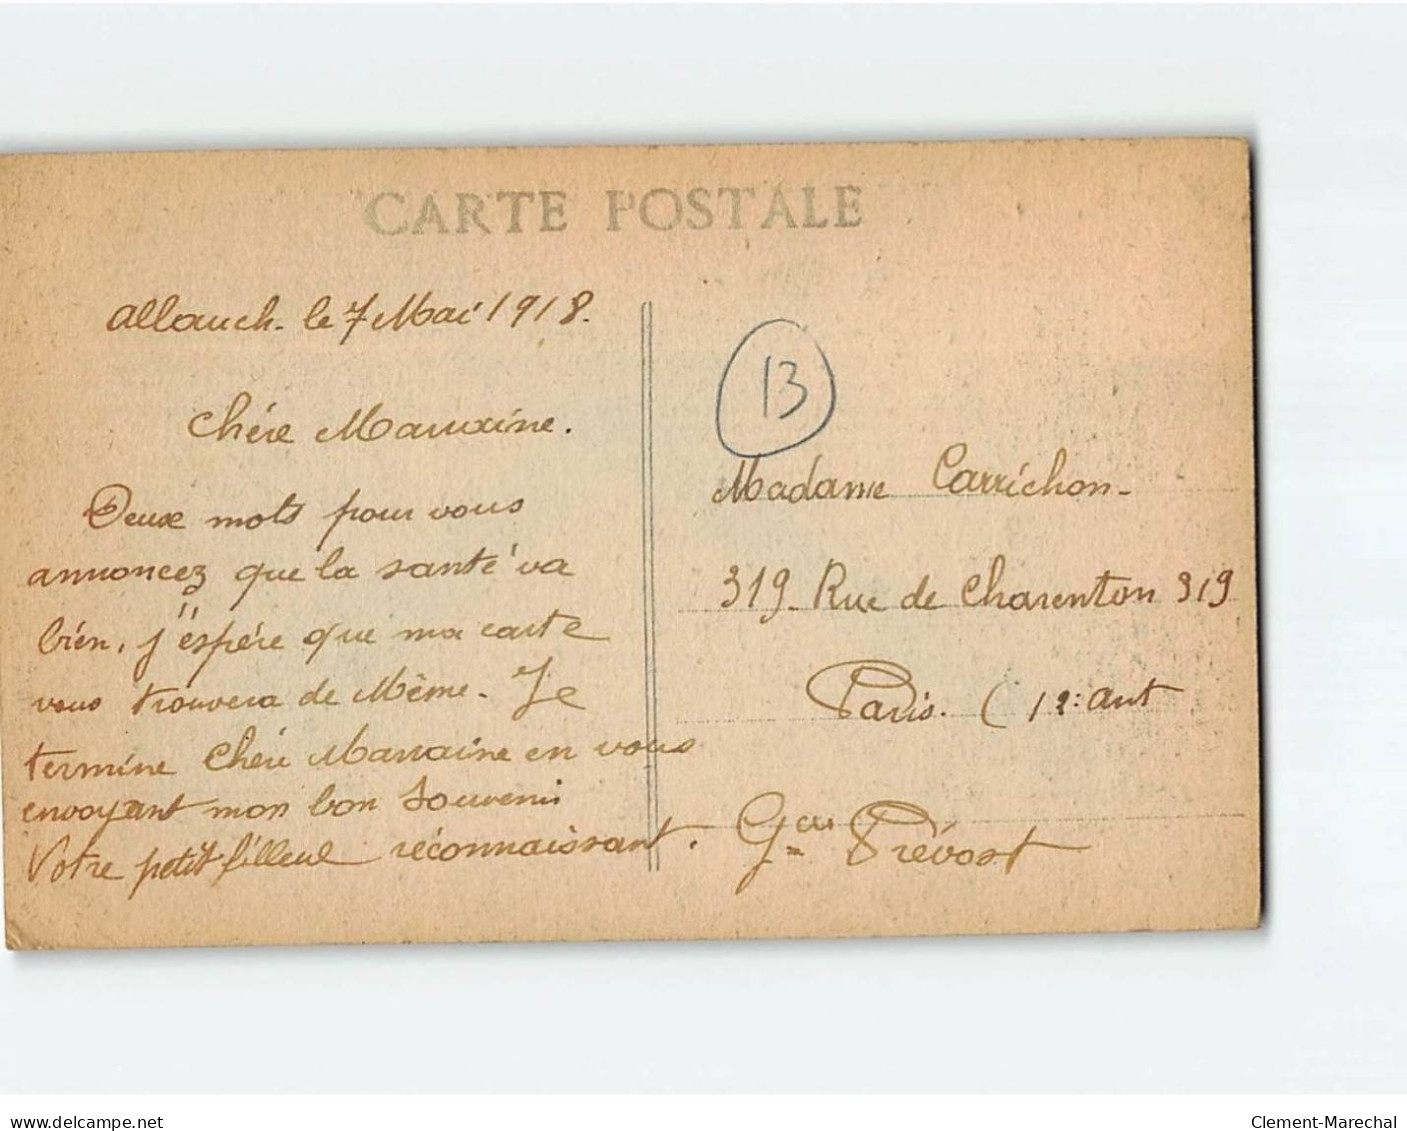 CARTE POSTALE
Allauch. le 7 Mai 1918.
Chére Marraine.
Deux mots pour vous
annoncez que la santé va
bien, j'éspére que ma carte
vous trouvera de Même. Je
termine Chére Marraine en vous
envoyant mon bon Souvenir
Votre petit filleul réconnaissant.
13
Madame Carrichon-
319. Rue de Charenton 319
Paris. (12: art
Prévost
delcampe.net
Clement-Marechal